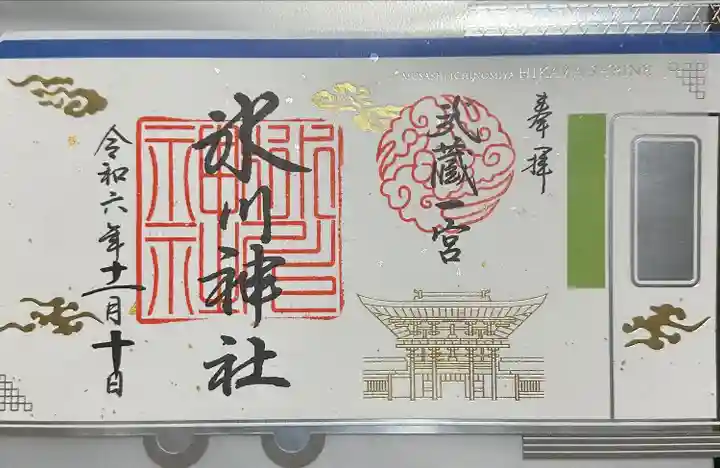 MUSASHI ICHINOMIYA HIKAWA SHRINE
奉拝
武蔵一宮
氷川神社
令和六年十一月十日